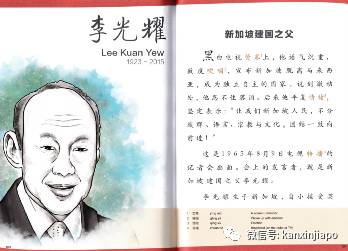 李光耀
Lee Kuan Yew
1923 - 2015
新加坡建国之父
黑白电视荧幕上，他语气沉重，
数度哽咽，宣布新加坡脱离马来西
亚，成为独立自主的国家。说到激动
处，他忍不住落泪。后来他平复情绪，
坚定表示："让我们新加坡人民，不分
族群、语言、宗教与文化，团结一致向
前进！"
这是1965年8月9日电视转播的
记者会画面，会上的发言者，就是新
加坡建国之父李光耀。
李光耀生于新加坡，自小接受英
微信号: kanxinjiapo